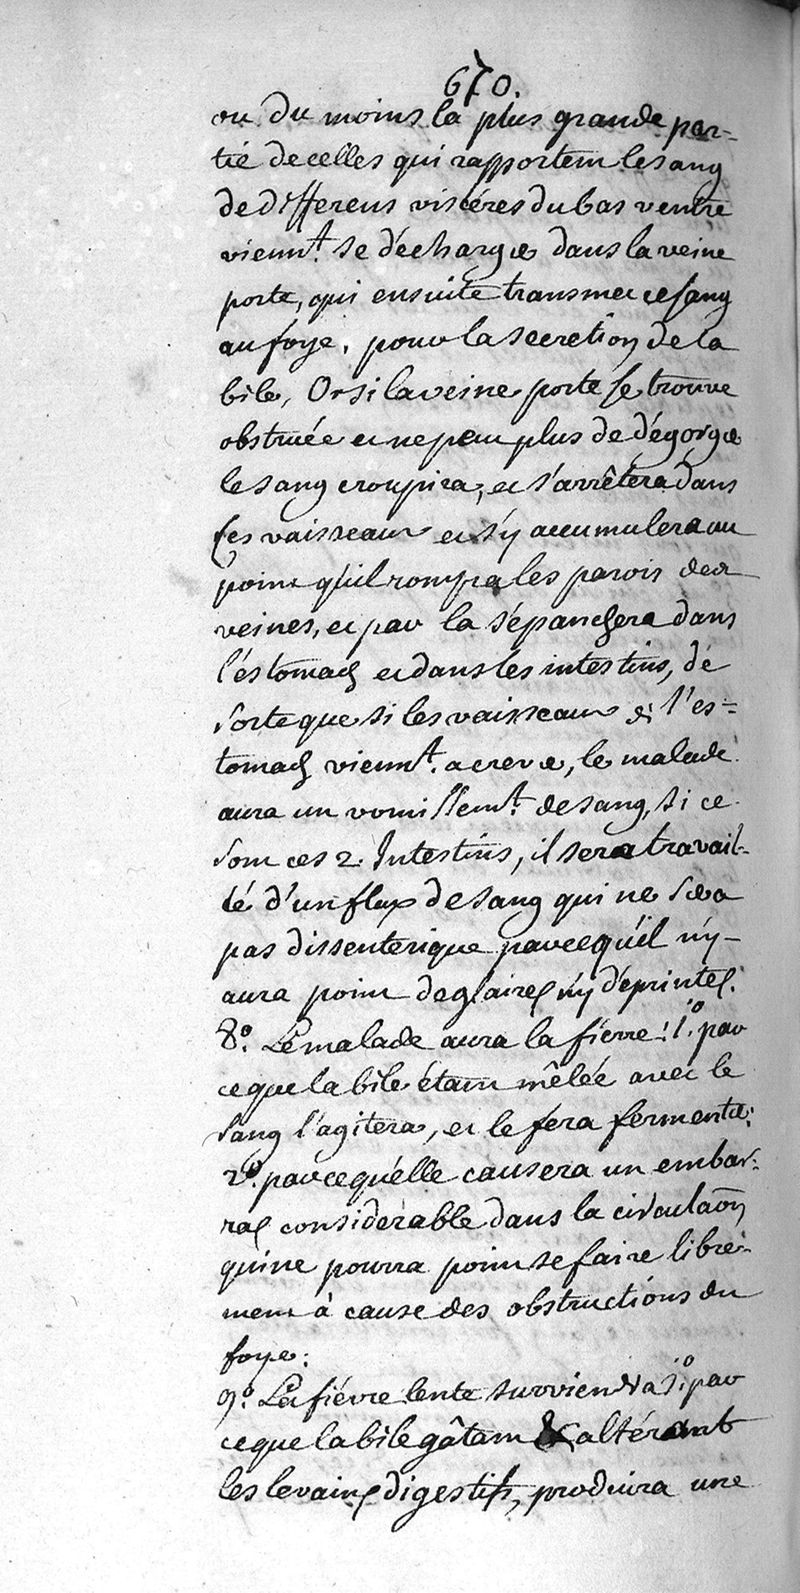 670.
ou du moins la plus grande par-
tie de celles qui rapportent le sang
de differens viscéres du bas ventre
vienn.t se décharger dans la veine
porte, qui ensuite transmet ce sang
au foye, pour la secretion de la
bile, Or si la veine porte se trouve
obstruée et ne peut plus se dégorger
le sang croupira, et s'arrêtera dans
ses vaisseaux et s'y accumulera au
point qu'il rompra les parois des
veines, et par la s'épanchera dans
l'éstomach et dans les intestins, de
sorte que si les vaisseaux de l'es=
tomach vienn.t a crever, le malade
aura un vomissem.t de sang, si ce
sont ces 2. Intestins, il sera travail-
lé d'un flux de sang qui ne sera
pas dissenterique parcequ'il n'y-
aura point de glaires n'y d'éprintes.
8.o Le malade aura la fiévre: 1.o par
ceque la bile étant mêlée avec le
sang l'agitera, et le fera fermenter:
2.o parcequ'elle causera un embar-
ras considerable dans la circulaõn
qui ne pourra point se faire libre-
ment à cause des obstructions du
foye:
9.o La fiévre lente surviendra 1.o par
ceque la bile gâtant & altérant
les levains digestifs, produira une